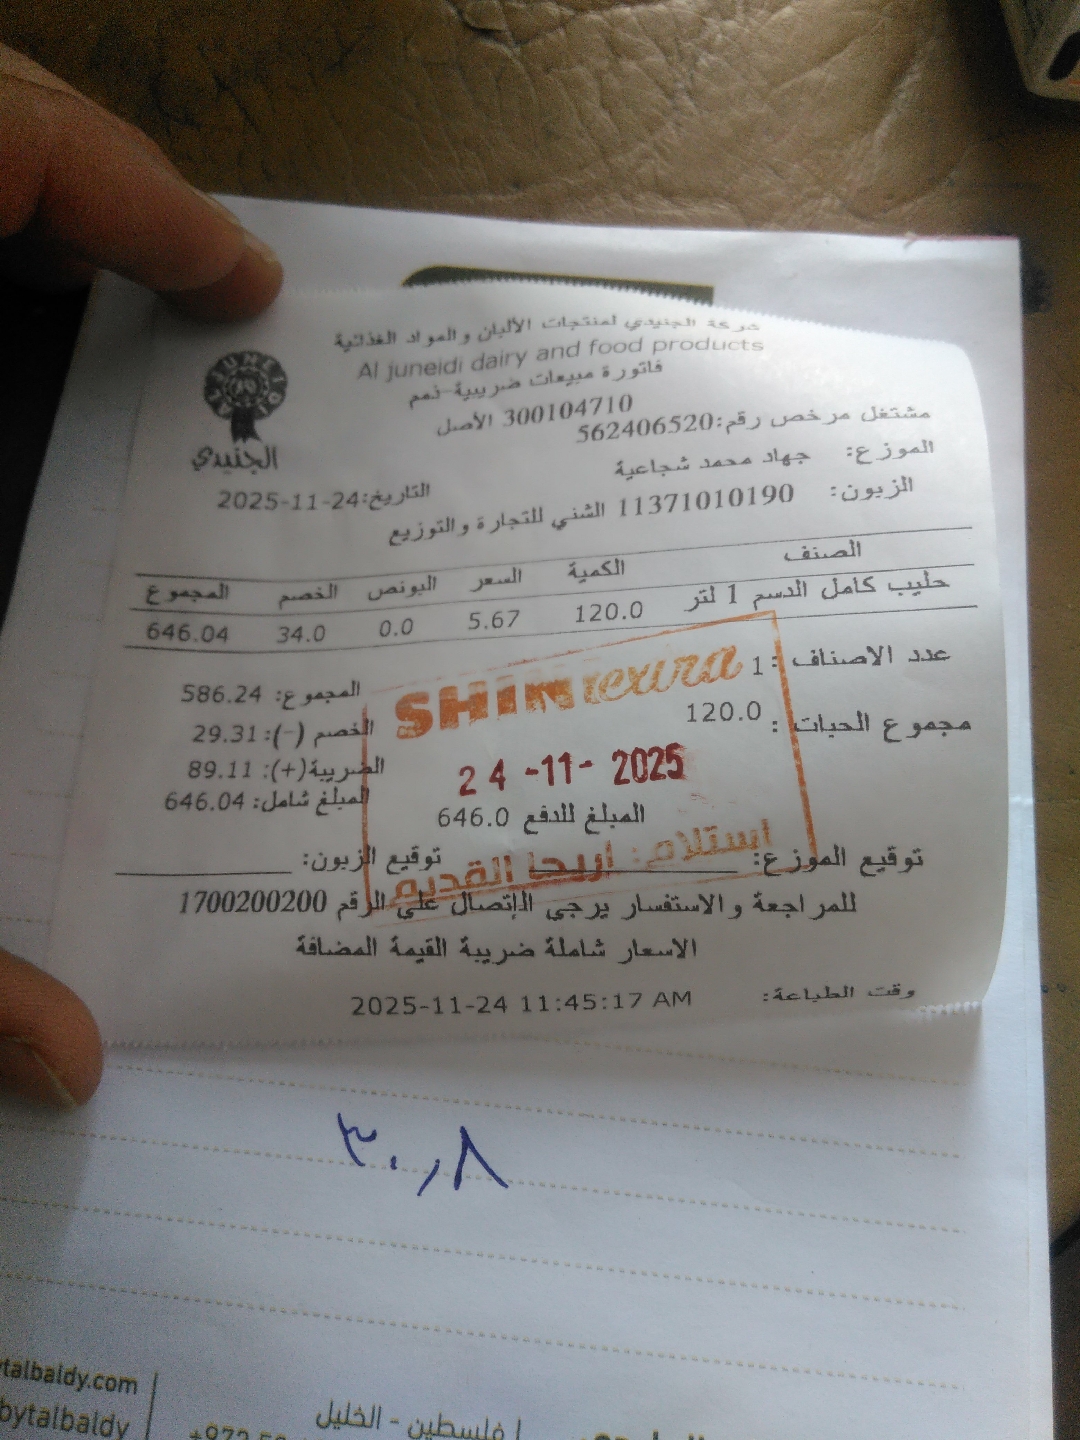 شركة الجنيدي لمنتجات الألبان والمواد الغذائية
Al juneidi dairy and food products
فاتورة مبيعات ضريبية-نمم
300104710 الأصل
مشتغل مرخص رقم:562406520
AL JUNEIDI
الجنيدي
الموزع: جهاد محمد شجاعية
التاريخ:2025-11-24
الزبون: 11371010190 الشني للتجارة والتوزيع
الصنف الكمية السعر البونص الخصم المجموع
حليب كامل الدسم 1 لتر 120.0 5.67 0.0 34.0 646.04
عدد الاصناف : 1
مجموع الحبات : 120.0
المجموع: 586.24
الخصم (-): 29.31
الضريبة(+): 89.11
المبلغ شامل: 646.04
SHINI extra
24 -11- 2025
استلام: اريحا القديم
المبلغ للدفع 646.0
توقيع الموزع: توقيع الزبون:
للمراجعة والاستفسار يرجى الإتصال على الرقم 1700200200
الاسعار شاملة ضريبة القيمة المضافة
وقت الطباعة: 2025-11-24 11:45:17 AM
٣٠,٨
talbaldy.com
bytalbaldy
فلسطين - الخليل